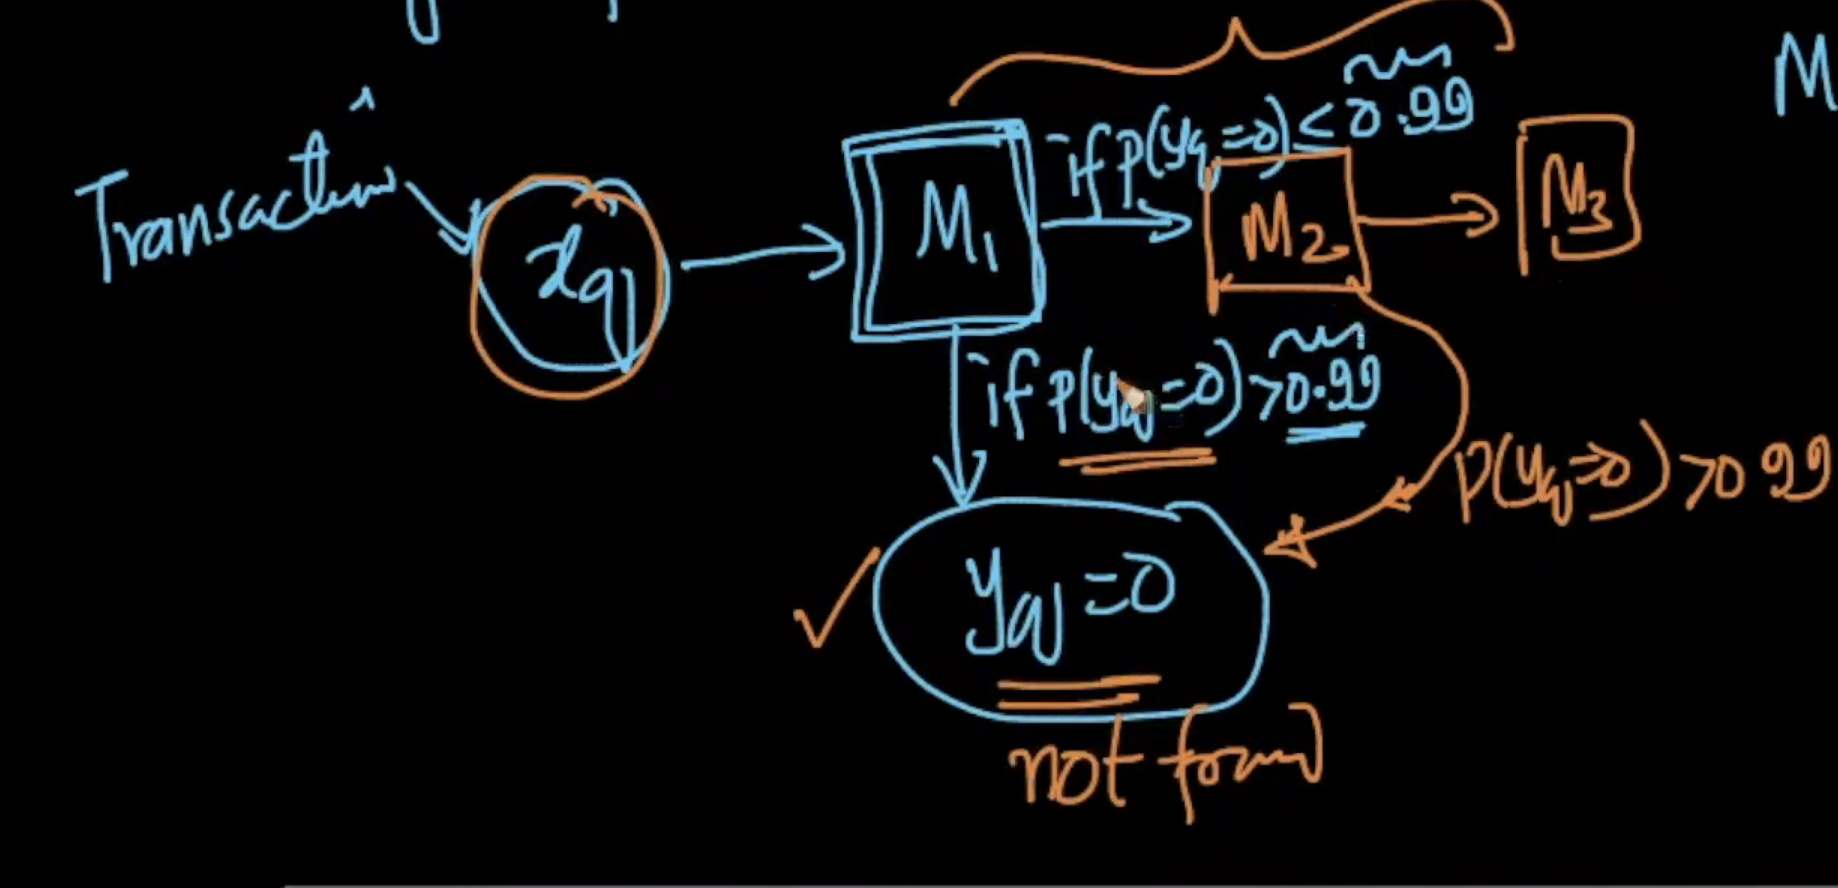 Transaction
xq
M1
if P(yq=0) ≤ 0.99
M2
M3
M
if P(yq=0) > 0.99
P(yq=0) > 0.99
yq=0
not fraud